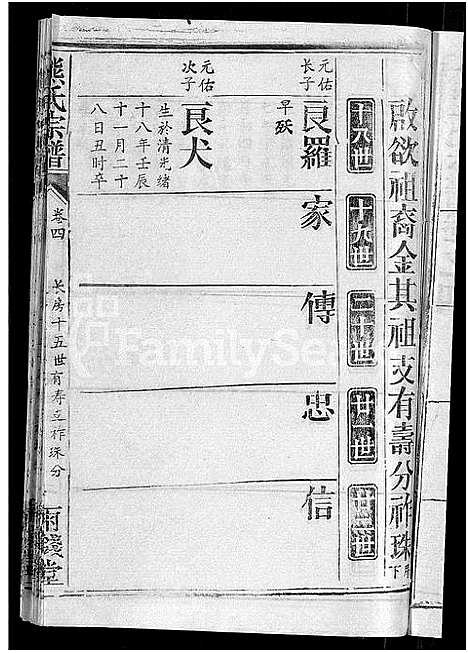 啟欲祖裔金其祖支有壽分祚珠下
十八世
十九世
二十世
廿一世
廿二世
元佑長子
良羅
早殀
家
傳
忠
信
元佑次子
良犬
生於清光緒
十八年壬辰
十一月二十
八日丑时卒
熊氏宗譜
卷四
长房十五世有寿支祚珠分
雨錢堂
FamilySea